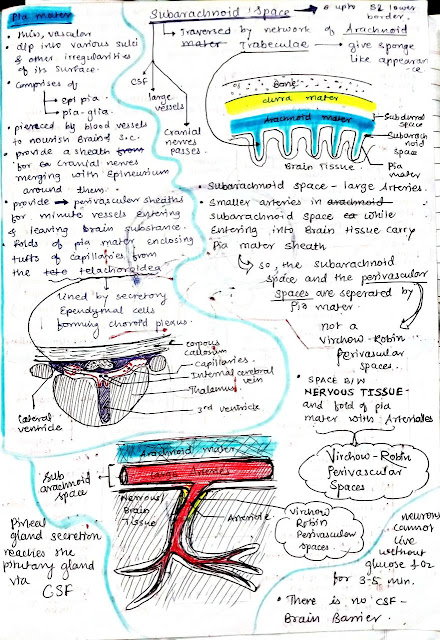 Pia mater
• thin, vascular
• dip into various sulci
& other irregularities
of its surface.
• comprises of
→ epi pia
→ pia-glia.
• pierced by blood vessels
to nourish Brain & S.C.
• provide a sheath from
for Cranial nerves
merging with Epineurium
around them.
• provide → perivascular sheaths
for minute vessels entering
& leaving brain substance.
• folds of pia mater enclosing
tufts of capillaries from
the tela choroidea
lined by secretory
Ependymal cells
forming choroid plexus.
corpous
callosum
Capillaries
Internal cerebral
vein
Thalamus
3rd ventricle
lateral
ventricle
Subarachnoid Space → upto S2 lower
border.
→ Traversed by network of Arachnoid
mater Trabeculae → give sponge
like appearan
ce.
CSF
large
vessels
Cranial
nerves
passes.
Bone
dura mater
Arachnoid mater
Subdural
space
Subarach
noid
space
Pia
mater
BRAIN TISSUE
• Subarachnoid space - large Arteries.
• Smaller arteries in arachnoid
subarachnoid space while
Entering into Brain tissue carry
Pia mater sheath
so, the subarachnoid
space and the perivascular
spaces are seperated by
Pia mater.
not a
Virchow-Robin
perivascular
spaces.
• SPACE B/W
NERVOUS TISSUE-
and fold of pia
mater with Arterioles
Virchow-Robin
Perivascular
Spaces
Arachnoid mater
Large Arteries
Sub
arachnoid
space
Nervous
Brain
Tissue
Arteriole
Virchow
Robin
Perivascular
spaces
Pineal
gland secretion
reaches the
pitutary gland
via
CSF
neurons
cannot
live
without
glucose & O2
for 3-5 min.
• There is no CSF-
Brain Barrier.